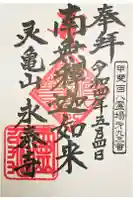 奉拝
令和四年五月四日
甲斐百八霊場第九三番
南無釋迦如来
灵亀山 永泰寺